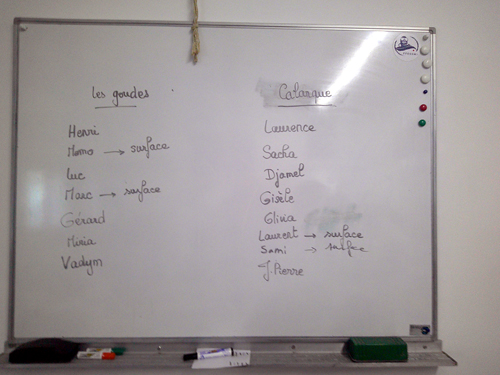 Les goudes
Henri
Momo → surface
Luc
Marc → surface
Gérard
Miria
Vadym
Calanque
Laurence
Sacha
Djamel
Gisèle
Olivia
Laurent → surface
Sami → surface
J. Pierre